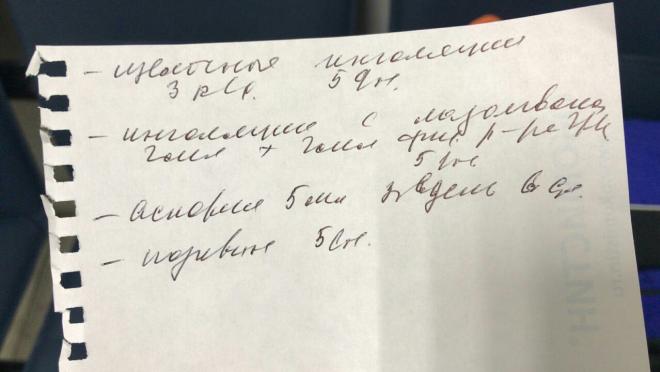 - щелочные ингаляции
3 р/д. 5 дн.
- ингаляции с лазолваном
2мл + 2мл физ. р-ра 3 р/д
5 дн
- аскорил 5 мл 3р в день 6 дн.
- називин 5 дн.